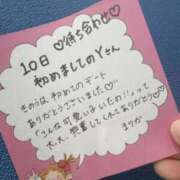 10日 ♡待ち合わせ♡
初めましてのYさん
きのうは 初めてのデート
ありがとうございました♡
「こんな可愛い子いたの!!」って
大・大・絶賛してくれてありがとう♡
まりか